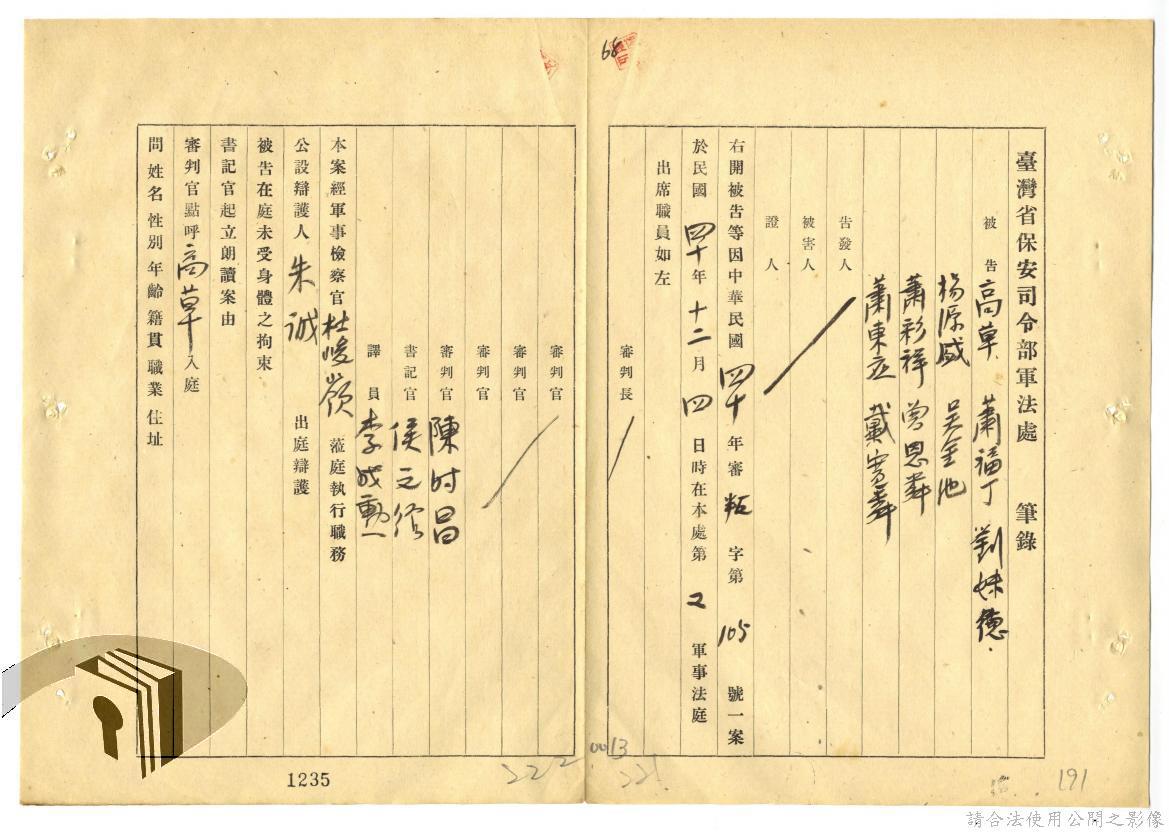 臺灣省保安司令部軍法處 筆錄
被告 高草 蕭福丁 劉妹德
楊源盛 吳金池
蕭彩祥 曾恩
蕭東立 戴
告發人
被害人
證人
右開被告等因中華民國四十年審 字第105號一案
於民國四十年十二月四日時在本處第 2 軍事法庭
出席職員如左
審判長
審判官
審判官
審判官
審判官 陳時昌
書記官 侯
譯員 李成勳
本案經軍事檢察官杜嶺 蒞庭執行職務
公設辯護人 朱誠 出庭辯護
被告在庭未受身體之拘束
書記官起立朗讀案由
審判官點呼高草入庭
問姓名性別年齡籍貫職業住址
68
1235
222
0013
221
191
請合法使用公開之影像